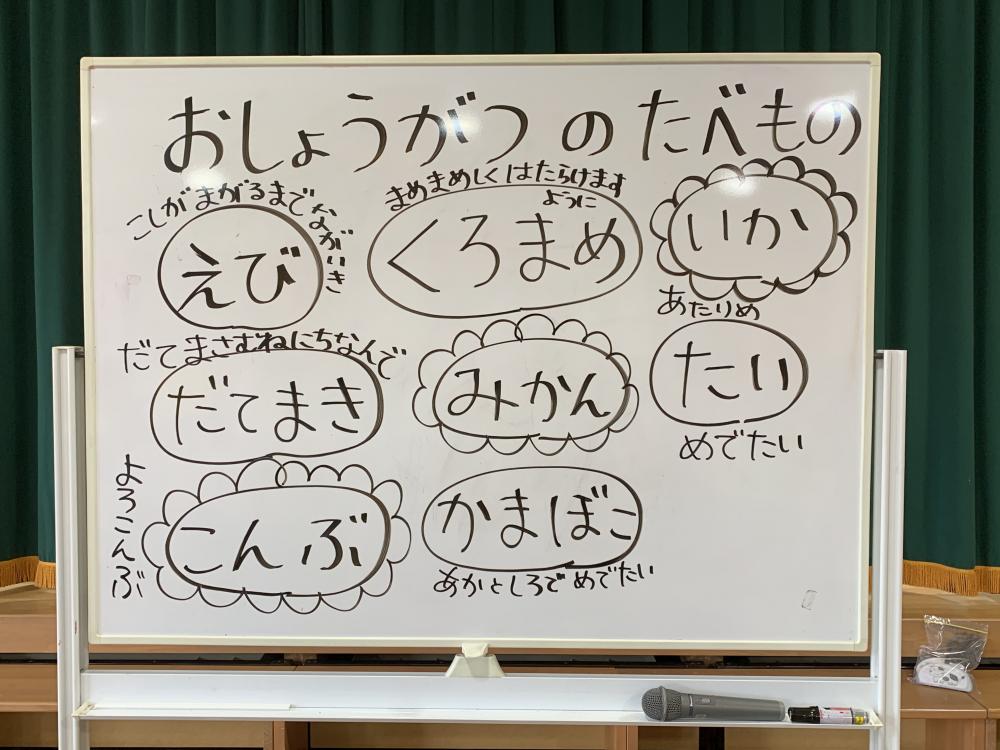 おしょうがつ の たべもの
こしが まがるまで ながいき
えび
まめまめしく はたらけます
ように
くろまめ
いか
あたりめ
だて まさむねにちなんで
だてまき
みかん
たい
めでたい
よろこんぶ
こんぶ
かまぼこ
あかとしろで めでたい